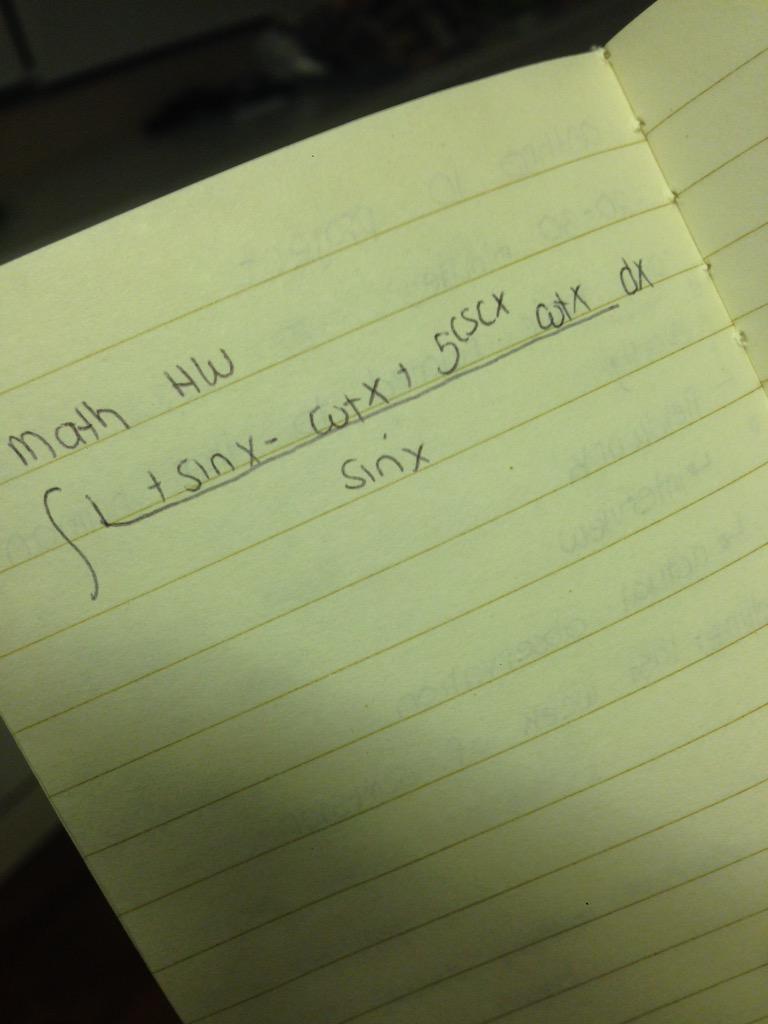 math HW
∫ 1 + sinx - cotx + 5^cscx cotx dx
sinx